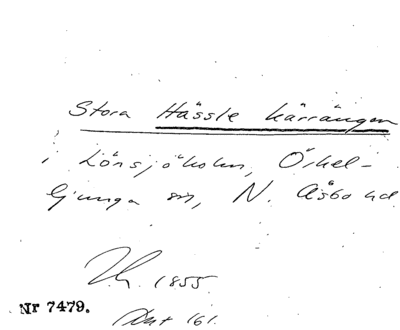 Stora Hässle kärrängen
i Lönsjöholm, Örkel-
ljunga sn, N. Åsbo hd.
1855
Nr 7479.
Akt 161.